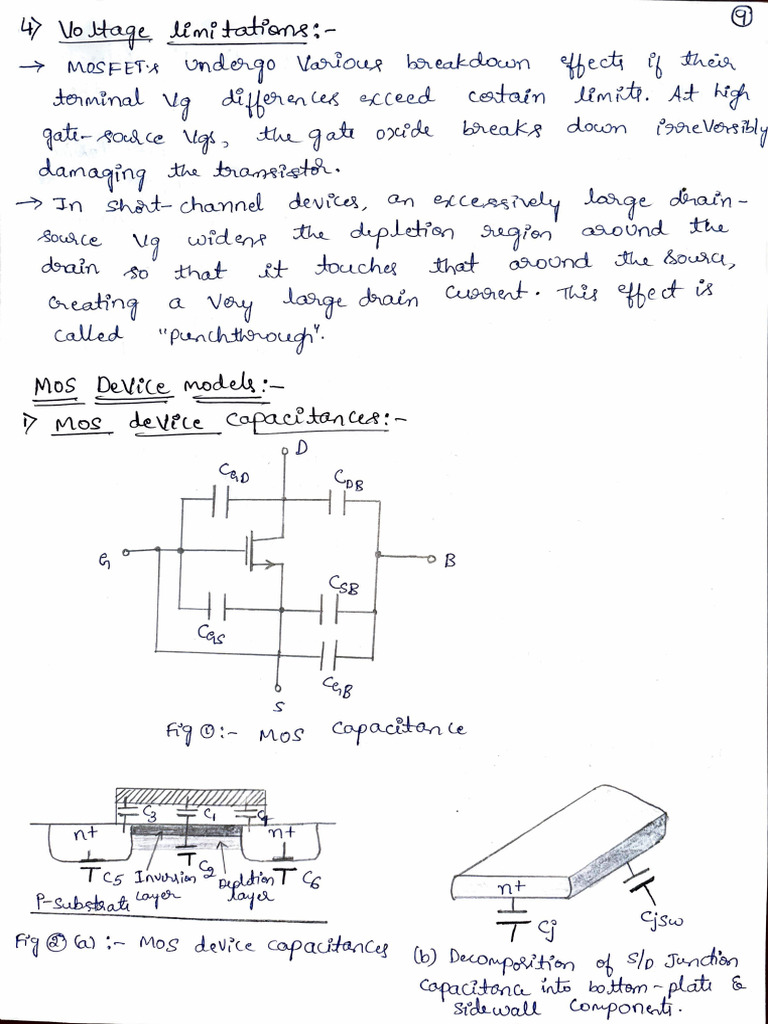 9
4) Voltage limitations:-
→ MOSFET's undergo various breakdown effects if their
terminal Vg differences exceed certain limits. At high
gate-source Vgs, the gate oxide breaks down irreversibly
damaging the transistor.
→ In short-channel devices, an excessively large drain-
source Vg widens the depletion region around the
drain so that it touches that around the source,
creating a very large drain current. This effect is
called "punchthrough".
MOS Device models:-
1) MOS device capacitances:-
D
CGD
CDB
G
B
CSB
CGS
CGB
S
Fig ①:- MOS capacitance
C3 C1 C4
n+ n+
C5 Inversion layer C2 Depletion layer C6
P-substrate
n+
Cj
Cjsw
Fig ② (a) :- MOS device capacitances
(b) Decomposition of S/D Junction
capacitance into bottom-plate &
sidewall components.